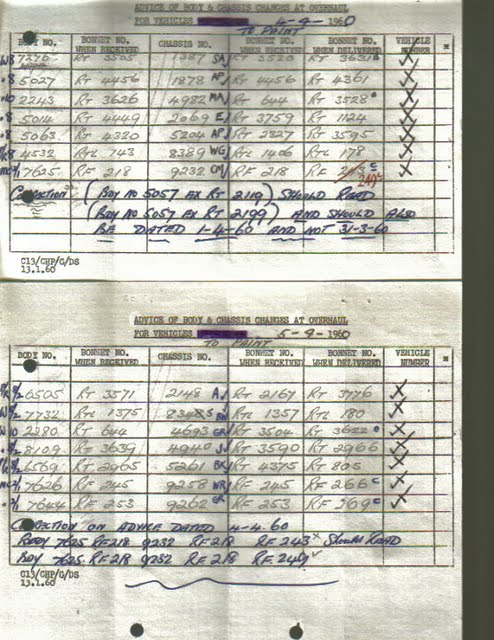 ADVICE OF BODY & CHASSIS CHANGES AT OVERHAUL
FOR VEHICLES 4-4-1960
TO PAINT
BODY NO. BONNET NO. WHEN RECEIVED CHASSIS NO. BONNET NO. WHEN RECEIVED BONNET NO. WHEN DELIVERED VEHICLE NUMBER
7276 RT 3505 1357 SA RT 3520 RT 3631
8 5027 RT 4456 1878 AP RT 4456 RT 4361
10 2243 RT 3626 4982 MA RT 644 RT 3528
8 5014 RT 4449 2069 E RT 3759 RT 1124
8 5063 RT 4320 5204 AP RT 2327 RT 3595
8 4532 RTL 143 8389 WG RTL 1406 RTL 178
7625 RF 218 9232 CM RF 218 RF 249 C
CORRECTION (BODY NO 5057 EX RT 2119) SHOULD READ
(BODY NO 5057 EX RT 2199) AND SHOULD ALSO
BE DATED 1-4-60 AND NOT 31-3-60
C13/CHP/G/DS
13.1.60
ADVICE OF BODY & CHASSIS CHANGES AT OVERHAUL
FOR VEHICLES 5-4-1960
TO PAINT
BODY NO. BONNET NO. WHEN RECEIVED CHASSIS NO. BONNET NO. WHEN RECEIVED BONNET NO. WHEN DELIVERED VEHICLE NUMBER
6505 RT 3571 2148 A RT 2167 RT 3776
7732 RTL 1375 RTL 1357 RTL 180
10 2280 RT 644 4693 GR RT 3504 RT 3622 C
8109 RT 3639 4940 S RT 3590 RT 2966
6569 RT 2965 5261 BK RT 4375 RT 805
7626 RF 245 9258 WR RF 245 RF 266 C
7644 RF 253 9262 GR RF 253 RF 269 C
CORRECTION ON ADVICE DATED 4-4-60
BODY 7625 RF 218 9232 RF 218 RF 243 X SHOULD READ
BDY 7625 RF 218 9232 RF 218 RF 249 ✓
C13/CHP/G/DS
13.1.60